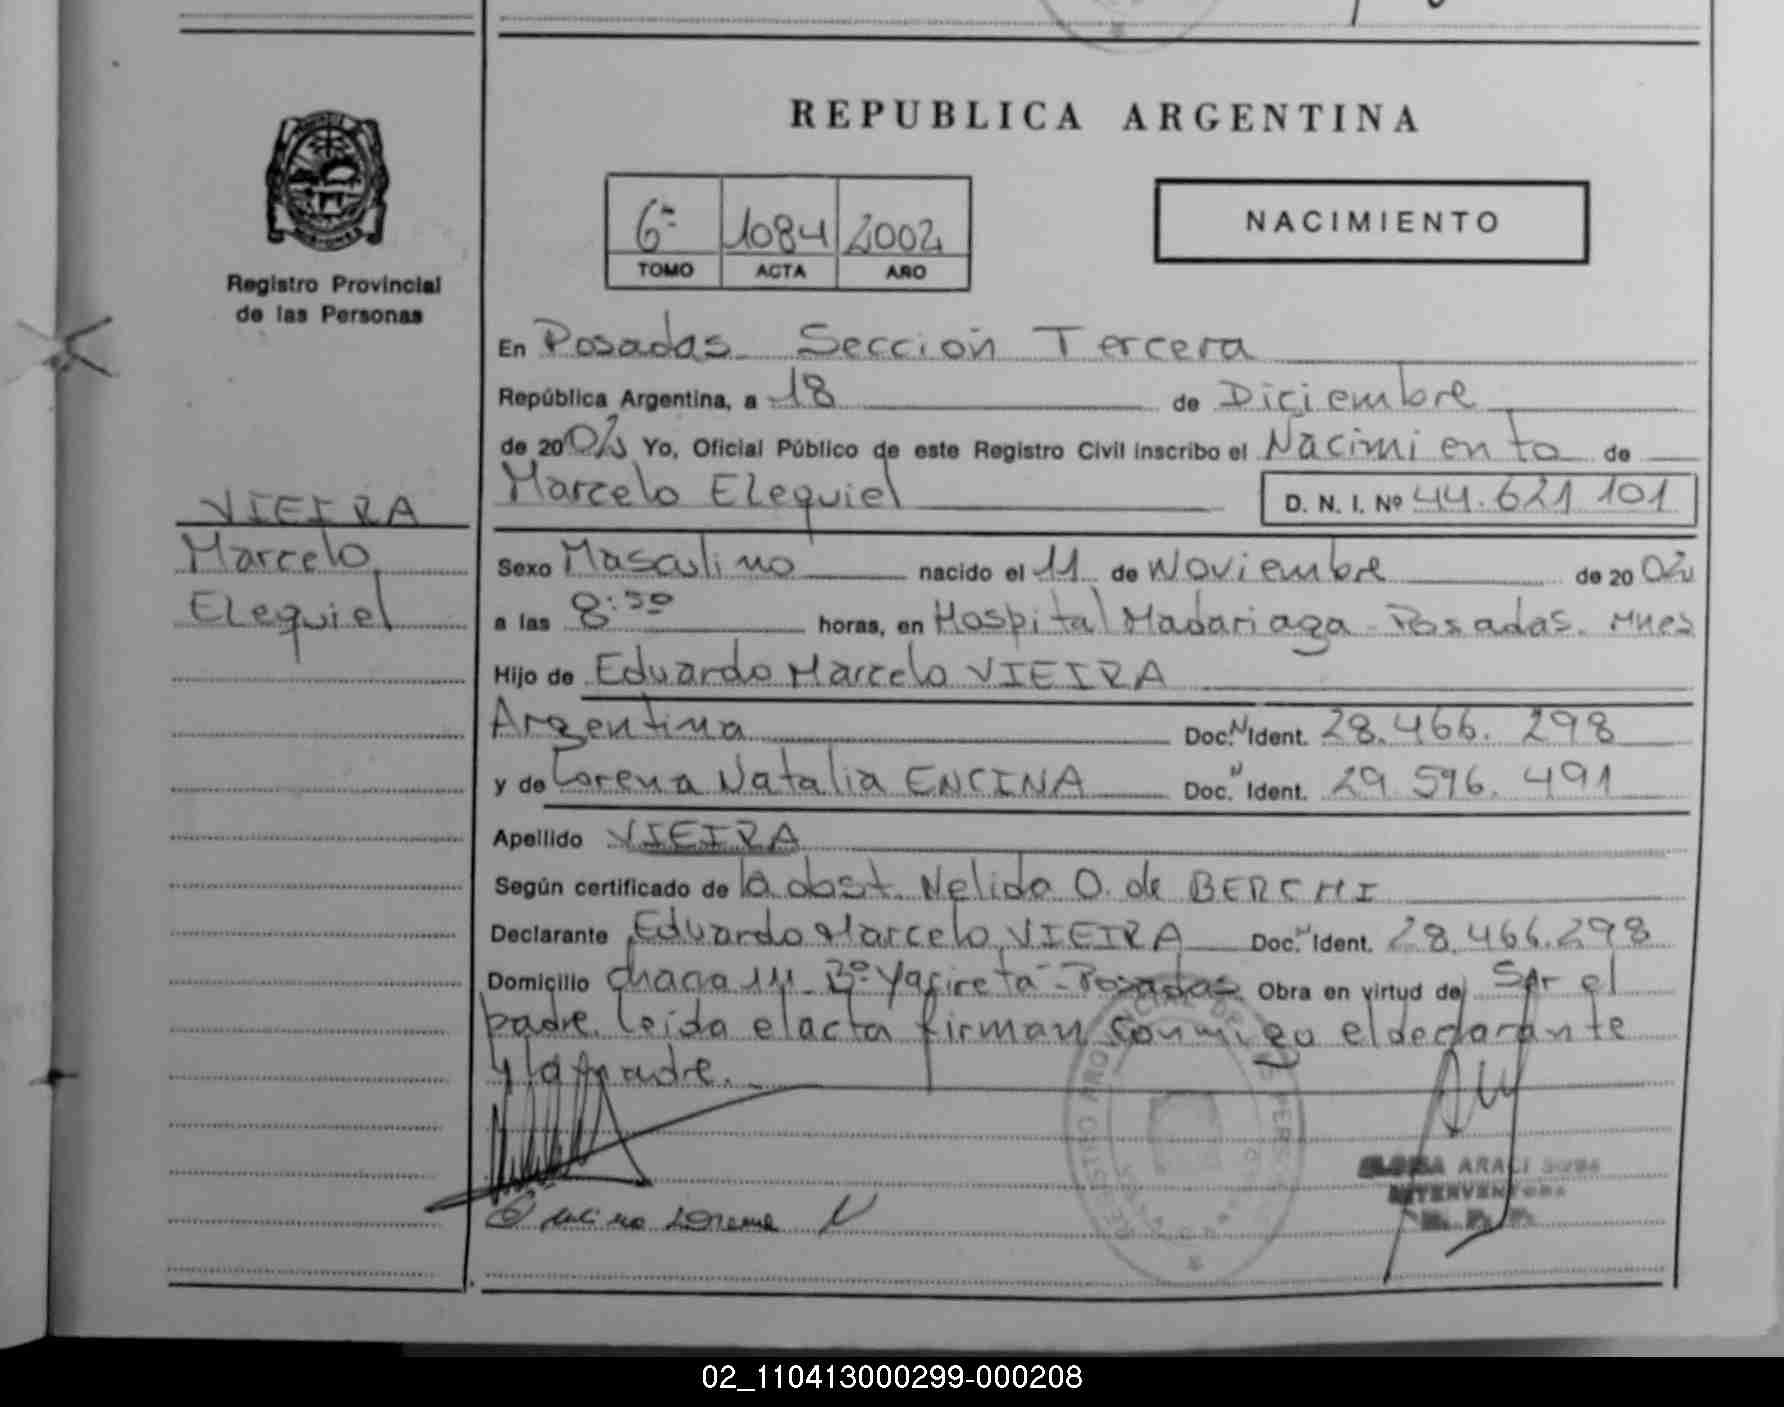 REPUBLICA ARGENTINA
6º 1084 2002
TOMO ACTA AÑO
NACIMIENTO
Registro Provincial
de las Personas
VIEIRA
Marcelo
Ezequiel
En Posadas Sección Tercera
República Argentina, a 18 de Diciembre
de 2002 Yo, Oficial Público de este Registro Civil inscribo el Nacimiento de
Marcelo Ezequiel D. N. I. Nº 44.621 101
Sexo Masculino nacido el 11 de Noviembre de 2002
a las 8:50 horas, en Hospital Madariaga - Posadas. Mnes
Hijo de Eduardo Marcelo VIEIRA
Argentina Doc. N Ident. 28.466. 298
y de Lorena Natalia ENCINA Doc. N Ident. 29 596. 491
Apellido VIEIRA
Según certificado de la obst. Nelida O. de BERCHI
Declarante Eduardo Marcelo VIEIRA Doc. N Ident. 28.466.298
Domicilio chacra 111 Bº Yaciretá - Posadas Obra en virtud de Ser el
padre. Leída el acta firman conmigo el declarante
y la madre.
Encina Lorena N
ARACI
INTERVENTORA
02_110413000299-000208